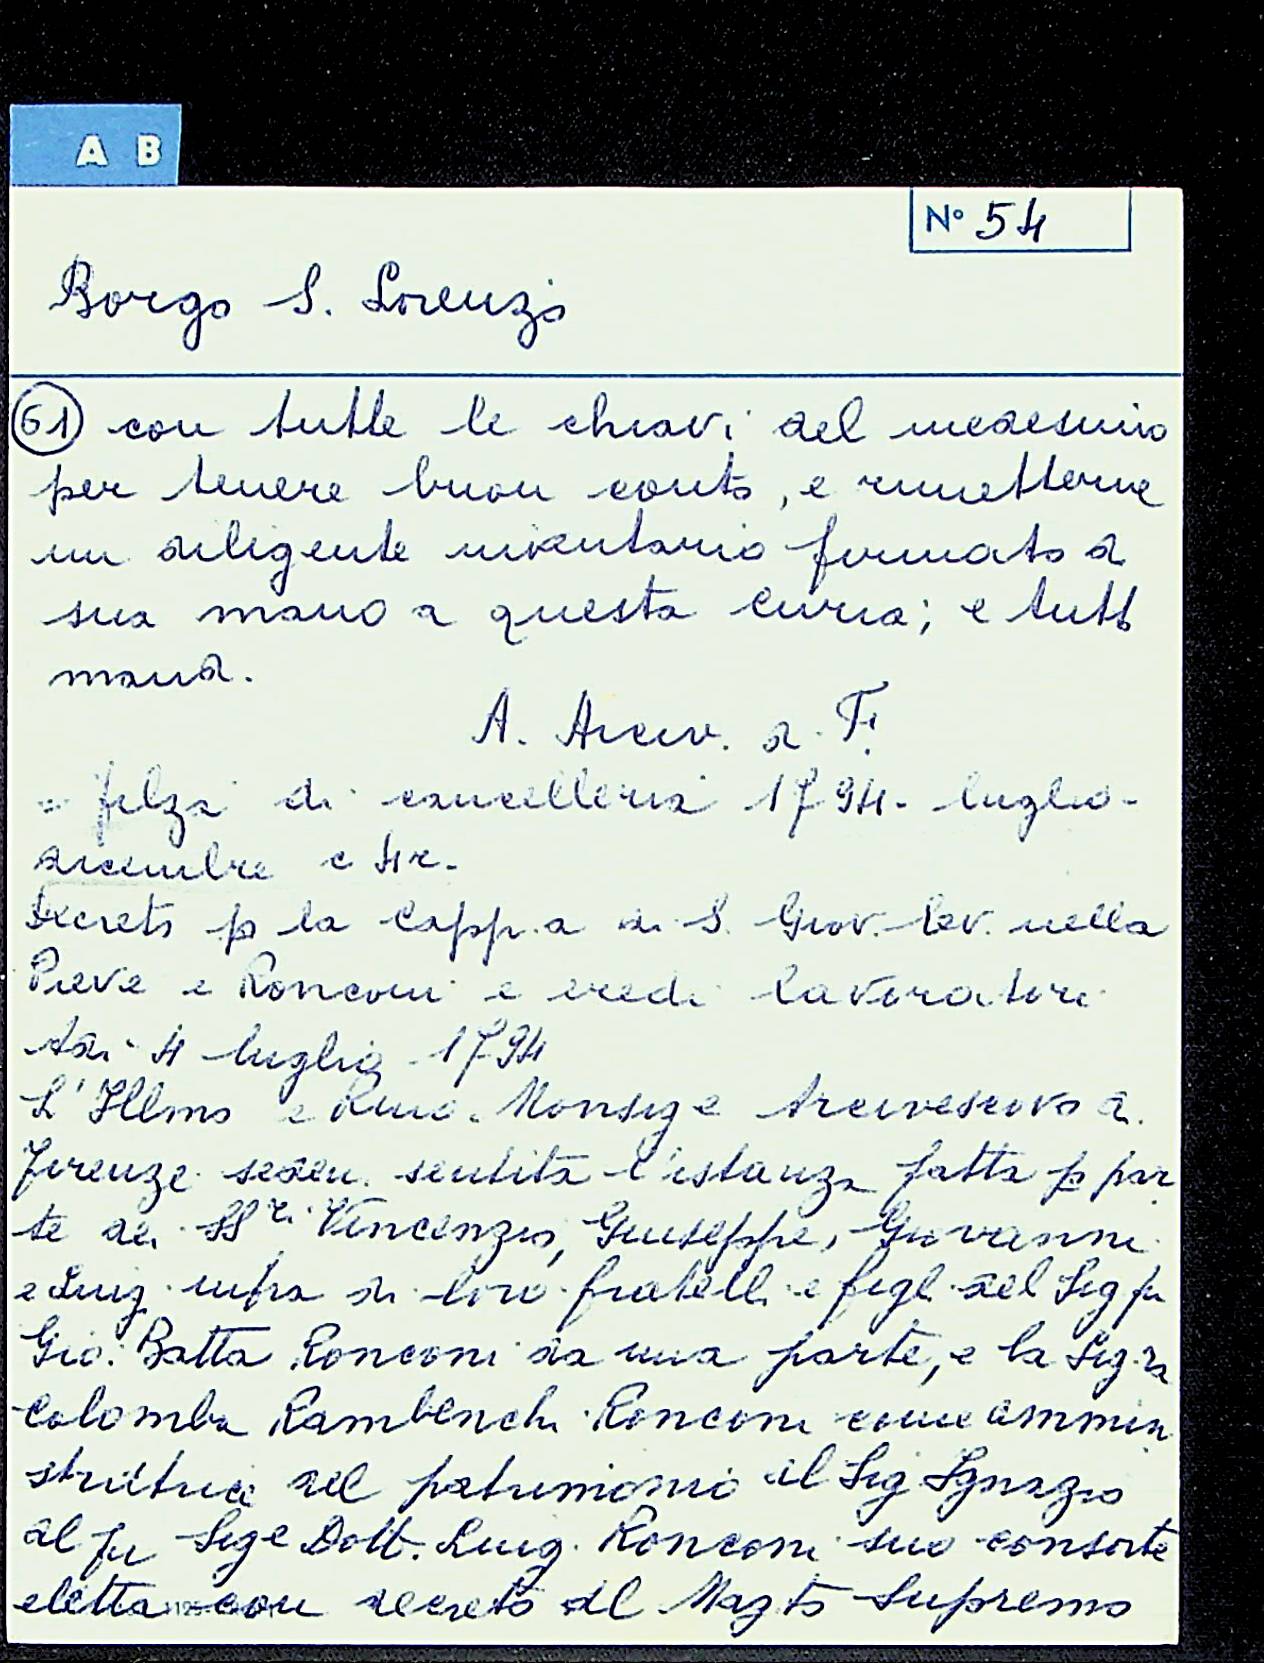 A B
N° 54
Borgo S. Lorenzo
61) con tutte le chiavi del medesimo
per tenere buon conto, e rimetterne
un diligente inventario firmato di
sua mano a questa curia; e tutt
mand.
A. Arciv. di Fi.
= filza di cancelleria 1794 - luglio -
dicembre c 4r -
Decreto p la Capp.a di S. Giov. Ev. nella
Pieve e Ronconi e eredi Lavoratori
A di 4 luglio 1794
L'Illmo e Rmo. Monsig e Arcivescovo di
Firenze seden. sentita l'istanza fatta p par
te dei SSri Vincenzo, Giuseppe, Giovanni
e Luig infra di loro fratelli e figl del Sig fu
Gio: Batta Ronconi da una parte, e la Sig.ra
Colomba Rambenchi Ronconi come ammin
stratrice del patrimonio del Sig Ignazio
del fu Sige Dott. Luig. Ronconi suo consorte
eletta con decreto del Mag.to Supremo